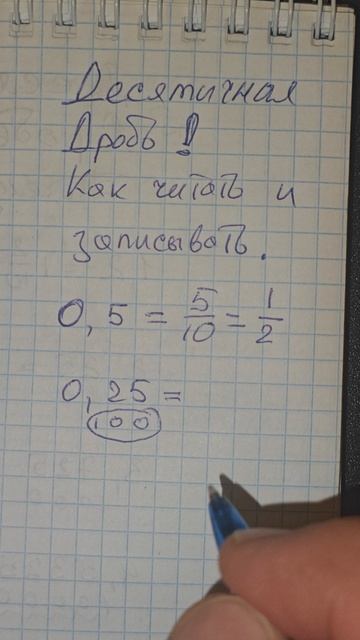 Десятичная
Дробь!
Как читать и
записывать.
0,5 = 5/10 = 1/2
0,25 =
100